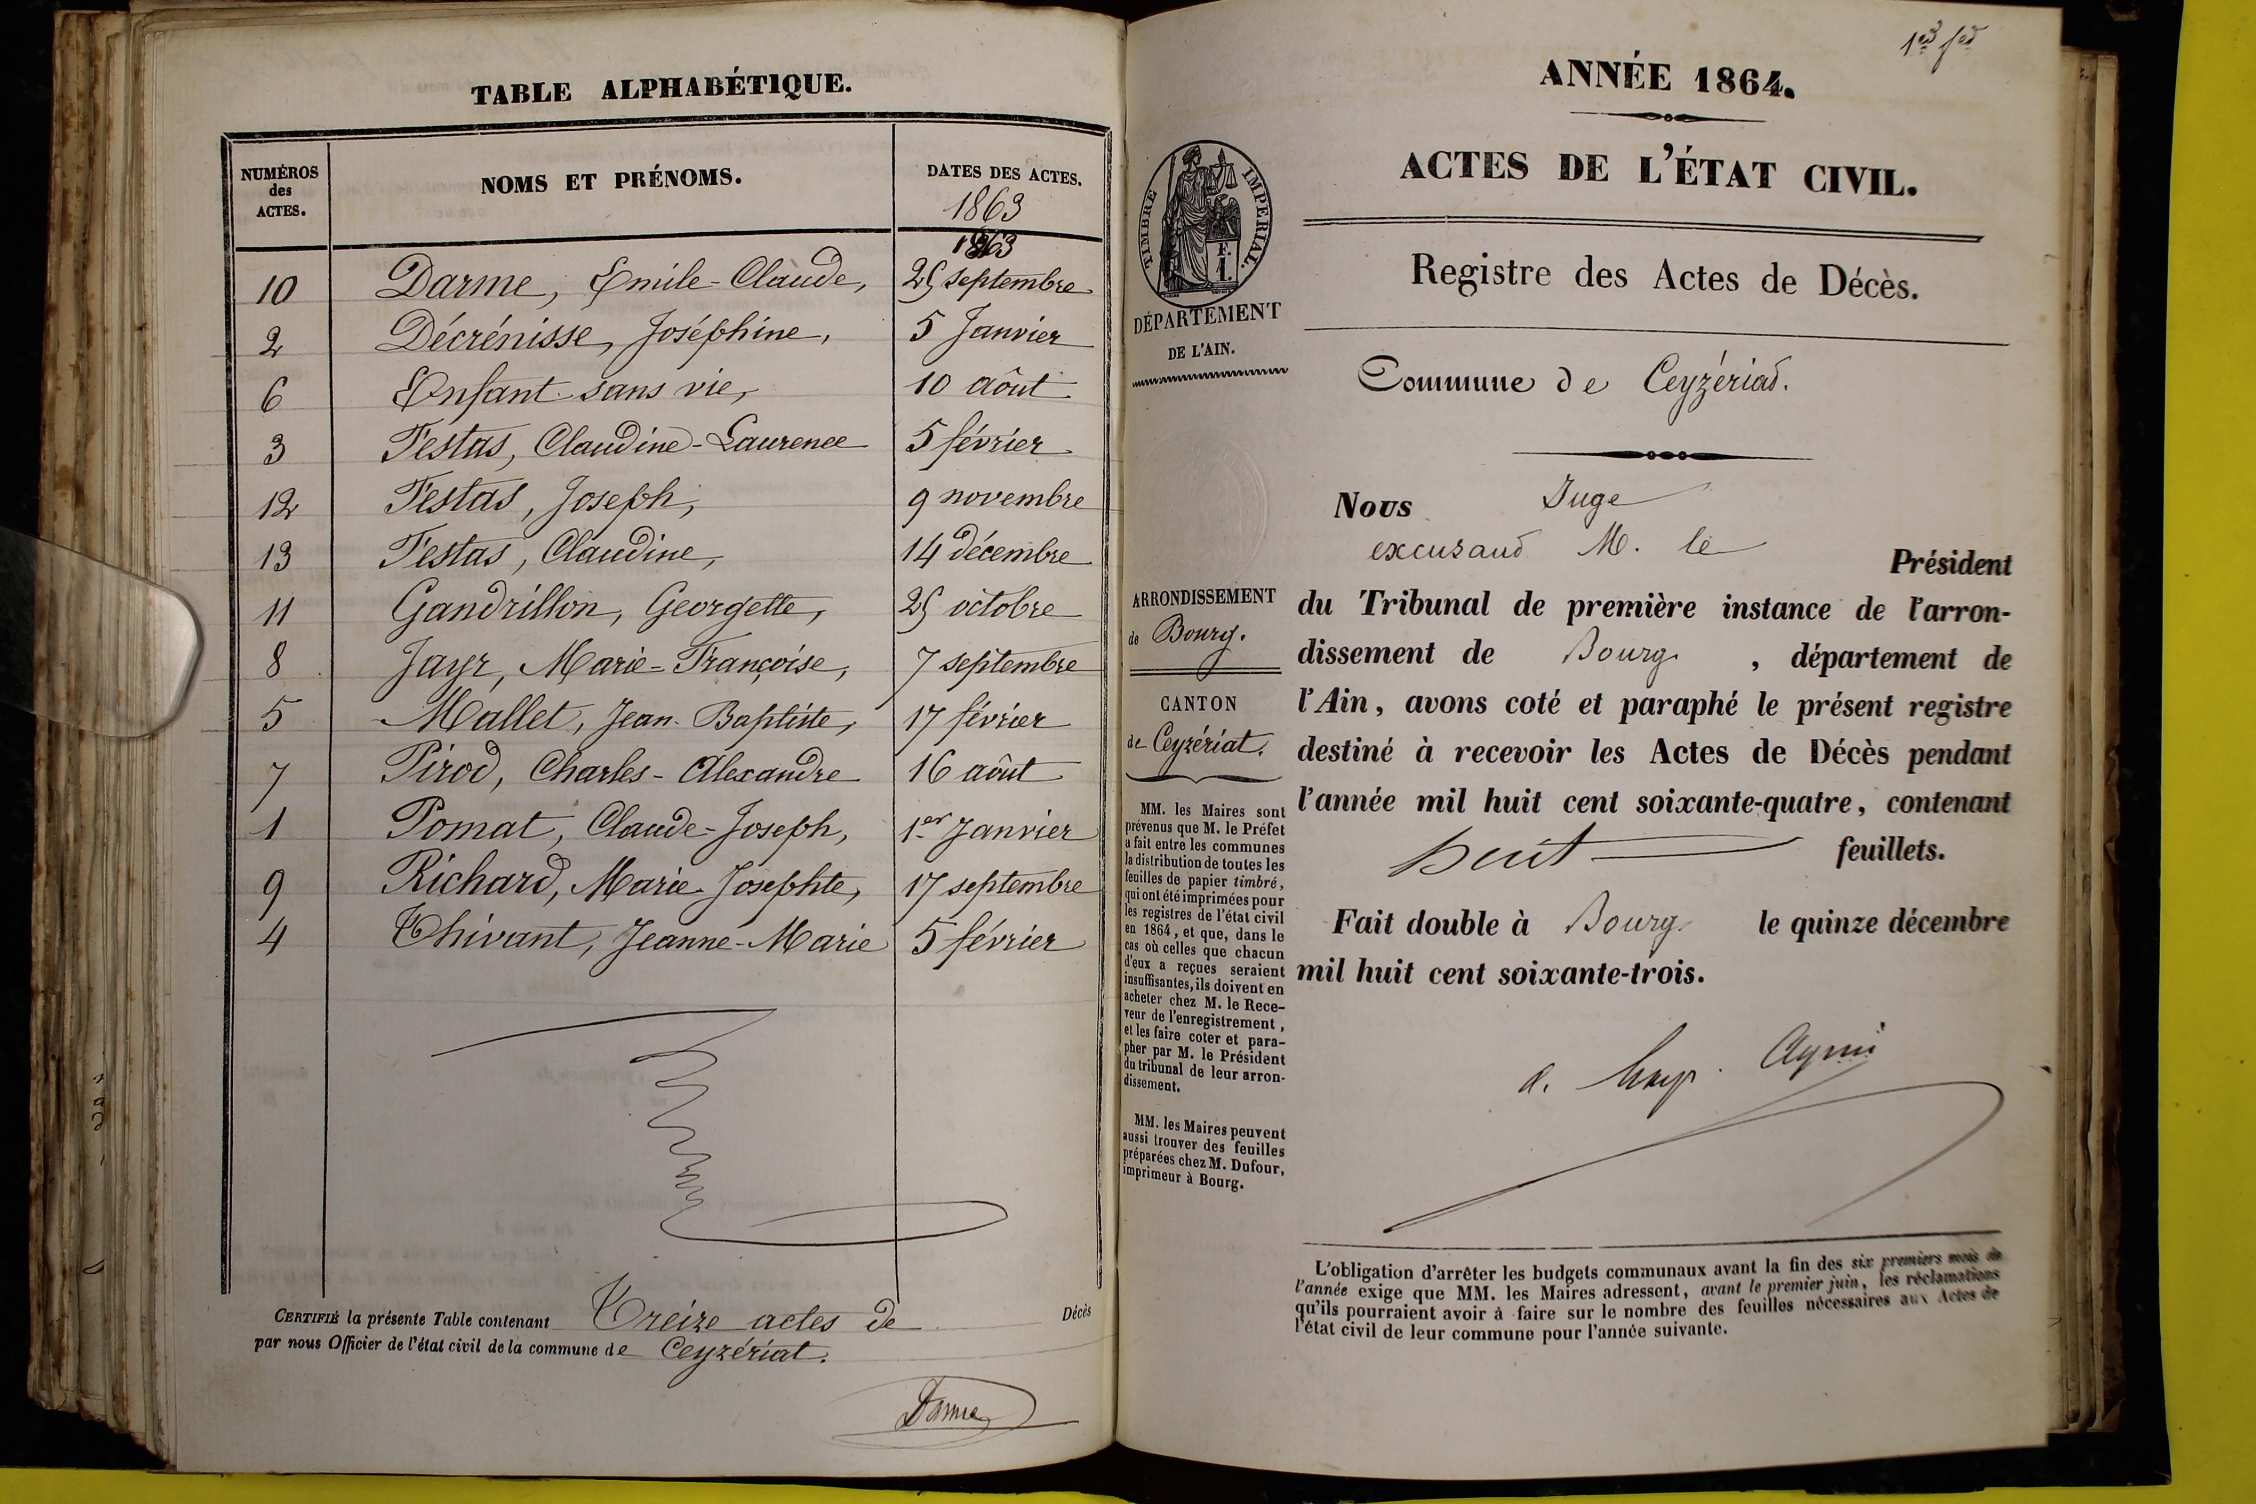 TABLE ALPHABÉTIQUE.
NUMÉROS des ACTES. NOMS ET PRÉNOMS. DATES DES ACTES.
1863
1863
10 Darme, Emile-Claude, 25 septembre
2 Décrénisse, Joséphine, 5 Janvier
6 Enfant sans vie, 10 aôut
3 Festas, Claudine-Laurence 5 février
12 Festas, Joseph, 9 novembre
13 Festas, Claudine, 14 décembre
11 Gandrillon, Georgette, 25 octobre
8 Jayr, Marie-Françoise, 7 septembre
5 Mallet, Jean-Baptiste, 17 février
7 Pirod, Charles-Alexandre 16 aôut
1 Pomat, Claude-Joseph, 1er Janvier
9 Richard, Marie-Josephte, 17 septembre
4 Thivant, Jeanne-Marie 5 février
CERTIFIÉ la présente Table contenant Treize actes de Décès
par nous Officier de l'état civil de la commune de Ceyzériat.
Darme
ANNÉE 1864.
ACTES DE L'ÉTAT CIVIL.
TIMBRE IMPERIAL.
DÉPARTEMENT
DE L'AIN.
Registre des Actes de Décès.
Commune de Ceyzériat.
ARRONDISSEMENT
de Bourg.
CANTON
de Ceyzériat.
MM. les Maires sont
prévenus que M. le Préfet
a fait entre les communes
la distribution de toutes les
feuilles de papier timbré,
qui ont été imprimées pour
les registres de l'état civil
en 1864, et que, dans le
cas où celles que chacun
d'eux a reçues seraient
insuffisantes, ils doivent en
acheter chez M. le Rece-
veur de l'enregistrement,
et les faire coter et para-
pher par M. le Président
du tribunal de leur arron-
dissement.
MM. les Maires peuvent
aussi trouver des feuilles
préparées chez M. Dufour,
imprimeur à Bourg.
Nous Juge
excusant M. le Président
du Tribunal de première instance de l'arron-
dissement de Bourg, département de
l'Ain, avons coté et paraphé le présent registre
destiné à recevoir les Actes de Décès pendant
l'année mil huit cent soixante-quatre, contenant
huit feuillets.
Fait double à Bourg le quinze décembre
mil huit cent soixante-trois.
L'obligation d'arrêter les budgets communaux avant la fin des six premiers mois de
l'année exige que MM. les Maires adressent, avant le premier juin, les réclamations
qu'ils pourraient avoir à faire sur le nombre des feuilles nécessaires aux Actes de
l'état civil de leur commune pour l'année suivante.